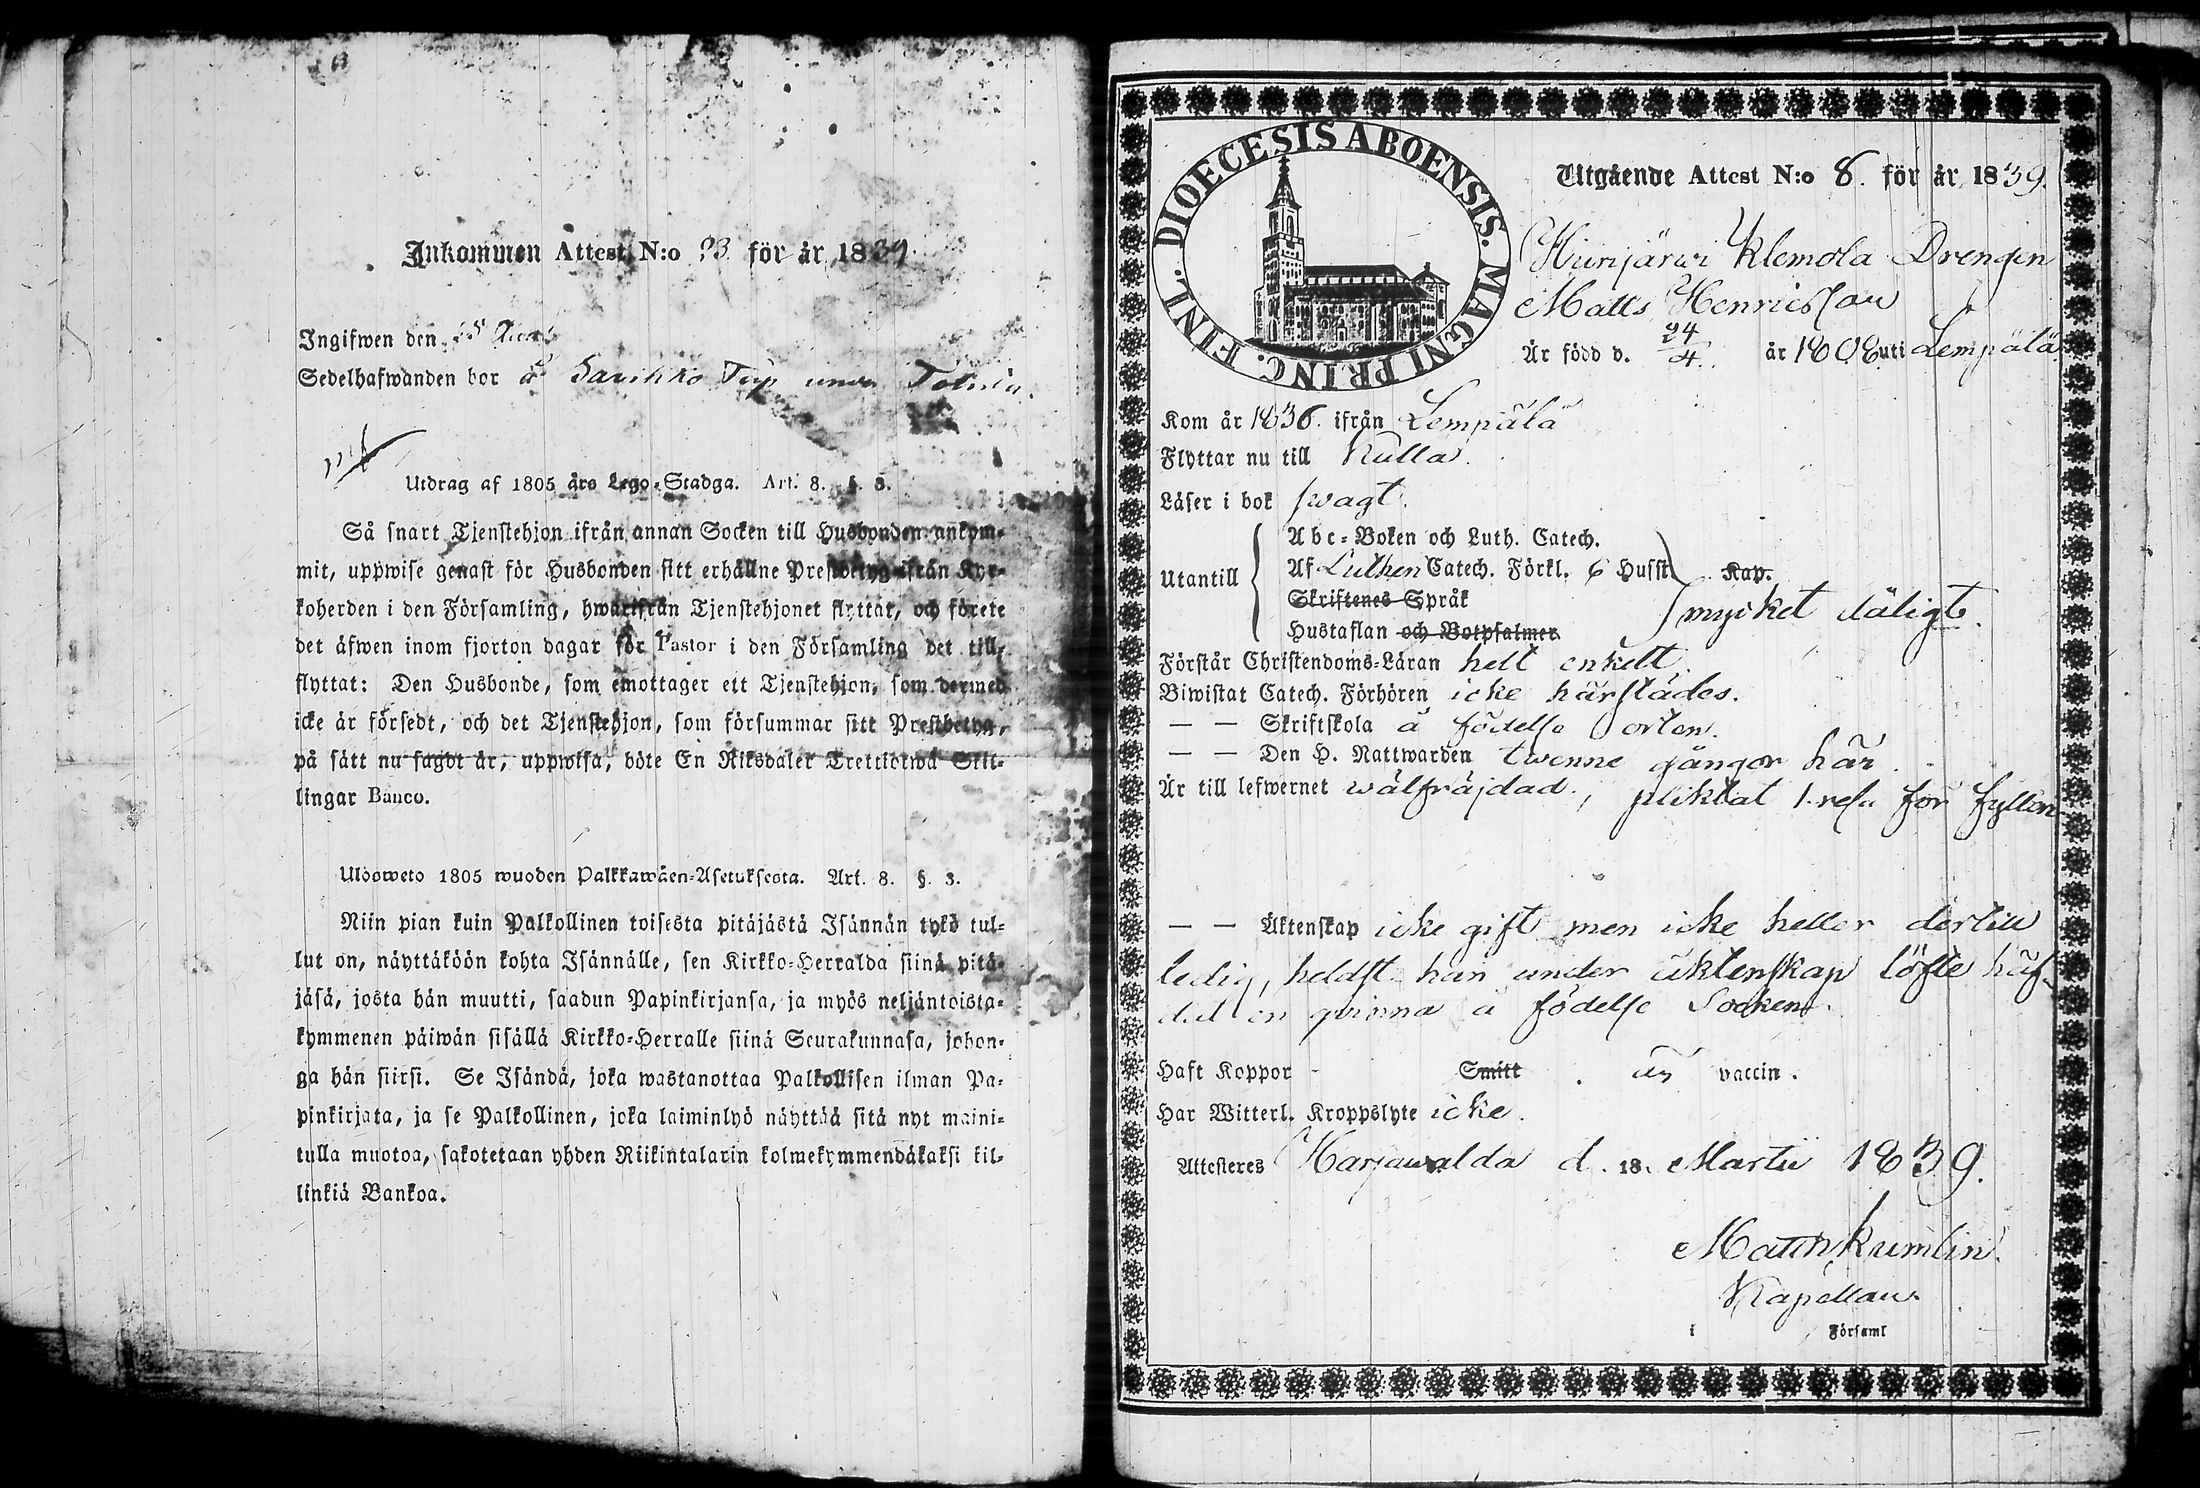 Inkommen Attest N:o 23 för år 1839.
Ingifwen den
Sedelhafwanden bor å Savikko Torp under
Utdrag af 1805 års Lego-Stadga. Art. 8. §. 3.
Så snart Tjenstehjon ifrån annan Socken till Husbonden ankom-
mit, uppwise genast för Husbonden sitt erhållne Prestbetyg ifrån Kyr-
koherden i den Församling, hwarifrån Tjenstehjonet flyttat, och förete
det äfwen inom fjorton dagar för Pastor i den Församling det till-
flyttat: Den Husbonde, som emottager ett Tjenstehjon, som dermed
icke är försedt, och det Tjenstehjon, som försummar sitt Prestbetyg,
på sätt nu sagdt är, uppwisa, böte En Riksdaler Trettiotwå Skil-
lingar Banco.
Ulosweto 1805 wuoden Palkkawäen-Asetuksesta. Art. 8. §. 3.
Niin pian kuin Palkollinen toisesta pitäjästä Isännän tykö tul-
lut on, näyttäköön kohta Isännälle, sen Kirkko-Herralda siinä pitä-
jäsä, josta hän muutti, saadun Papinkirjansa, ja myös neljäntoista-
kymmenen päiwän sisällä Kirkko-Herralle siinä Seurakunnasa, johon-
ga hän siirsi. Se Isändä, joka wastanottaa Palkollisen ilman Pa-
pinkirjata, ja se Palkollinen, joka laiminlyö näyttää sitä nyt maini-
tulla muotoa, sakotetaan yhden Riikintalarin kolmekymmendäkaksi kil-
linkiä Bankoa.
DIOECESIS ABOENSIS. MAGNI PRINC. FINL.
Utgående Attest N:o 8. för år 1839.
Hiirijärwi Klemola Drengen
Matts Henricsson
Är född d. 24/4. år 1808 uti Lempälä
Kom år 1836. ifrån Lempälä
Flyttar nu till Kulla.
Läser i bok swagt.
Utantill
Abc-Boken och Luth. Catech.
Af Lutheri Catech. Förkl. 6 Hufst. Kap.
Skriftenes Språk
Hustaflan och Botpsalmer
mycket dåligt.
Förstår Christendoms-Läran helt enkelt.
Biwistat Catech. Förhören icke härstädes.
— — Skriftskola å födelse orten.
— — Den H. Nattwarden twenne gångor här.
Är till lefwernet wälfräjdad, pliktat 1. resa för fylleri
— — Äktenskap icke gift men icke heller dertill
ledig, heldst han under äktenskap löfte häf-
dat en qvinna å födelse Socken.
Haft Koppor Smitt. är vaccin.
Har Witterl. Kroppslyte icke.
Attesteres Harjawalda d. 18. Martii 1839.
Matth Kumlin
Kapellan
i Församl